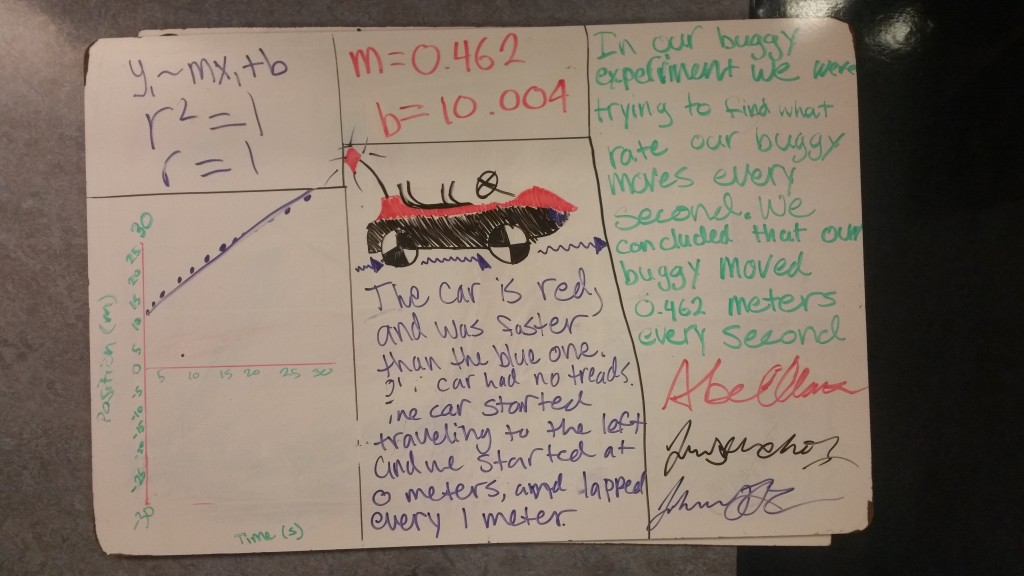 y₁~mx₁+b
r²=1
r=1
m=0.462
b=10.004
In our buggy
experiment we were
trying to find what
rate our buggy
moves every
second. We
concluded that our
buggy moved
0.462 meters
every second
The car is red,
and was faster
than the blue one.
car had no treads.
The car started
traveling to the left
and we started at
0 meters, and tapped
every 1 meter.
Position (m)
30
25
20
15
10
5
0
5 10 15 20 25 30
Time (s)